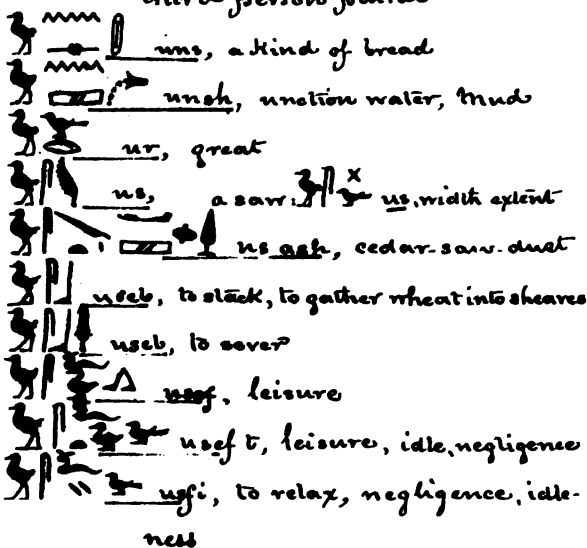 third person plural
uns, a kind of bread
unsh, unction water, mud
ur, great
us, a saw: us, width extent
us ash, cedar-saw-dust
useb, to stack, to gather wheat into sheaves
useb, to sever
usef, leisure
usef t, leisure, idle, negligence
usfi, to relax, negligence, idle-
ness